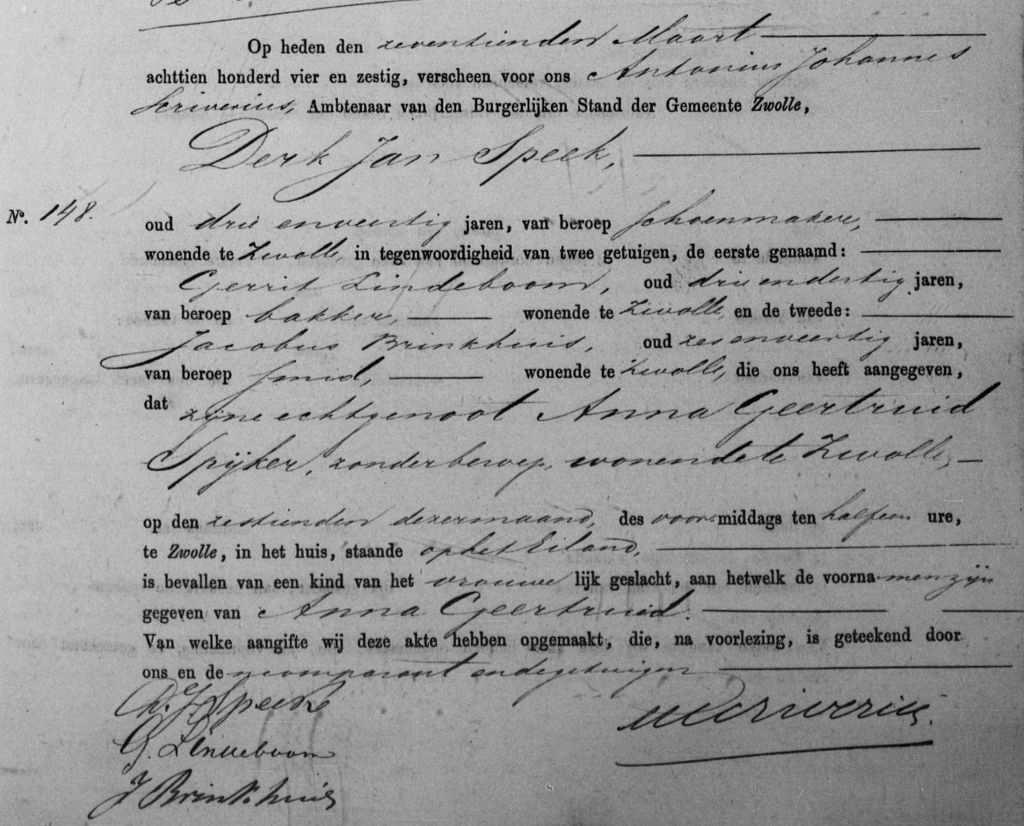 Op heden den zeventienden Maart
achttien honderd vier en zestig, verscheen voor ons Antonius Johannes
Scriverius, Ambtenaar van den Burgerlijken Stand der Gemeente Zwolle,
Derk Jan Speek,
No. 148.
oud drie en veertig jaren, van beroep Schoenmaker,
wonende te Zwolle, in tegenwoordigheid van twee getuigen, de eerste genaamd:
Gerrit Lindeboom, oud drie en dertig jaren,
van beroep bakker, wonende te Zwolle, en de tweede:
Jacobus Brinkhuis, oud zes en veertig jaren,
van beroep smid, wonende te Zwolle, die ons heeft aangegeven,
dat zijne echtgenoot Anna Geertruid
Spijker, zonder beroep, wonende te Zwolle,
op den zestienden dezer maand, des voormiddags ten half een ure,
te Zwolle, in het huis, staande op het Eiland,
is bevallen van een kind van het vrouwelijk geslacht, aan hetwelk de voornamen zijn
gegeven van Anna Geertruid.
Van welke aangifte wij deze akte hebben opgemaakt, die, na voorlezing, is geteekend door
ons en den comparant en de getuigen
D. J. Speek
G. Lindeboom
J Brinkhuis
Scriverius.